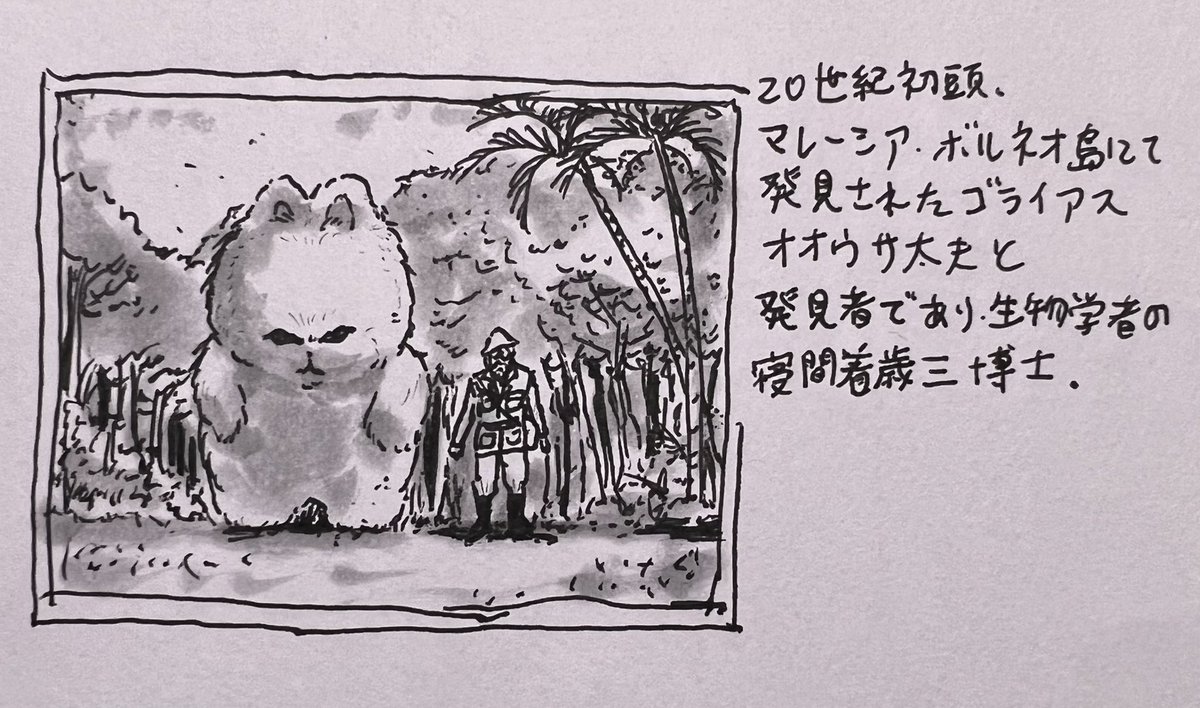 20世紀初頭、
マレーシア・ボルネオ島にて
発見されたゴライアス
オオウサ太夫と
発見者であり、生物学者の
寝間着歳三博士.